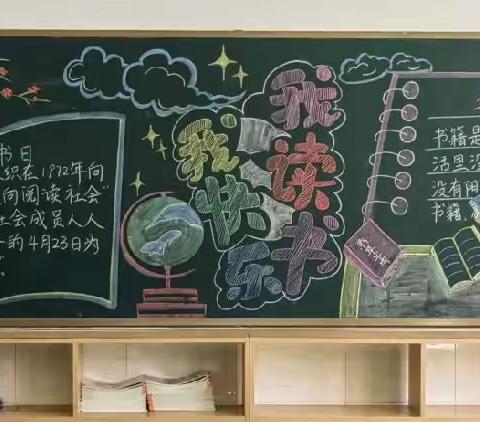 书日
织在1972年向
向阅读社会”
社会成员人人
的4月23日为
我读书
我快乐
书籍是
活里没
没有阳
书籍,